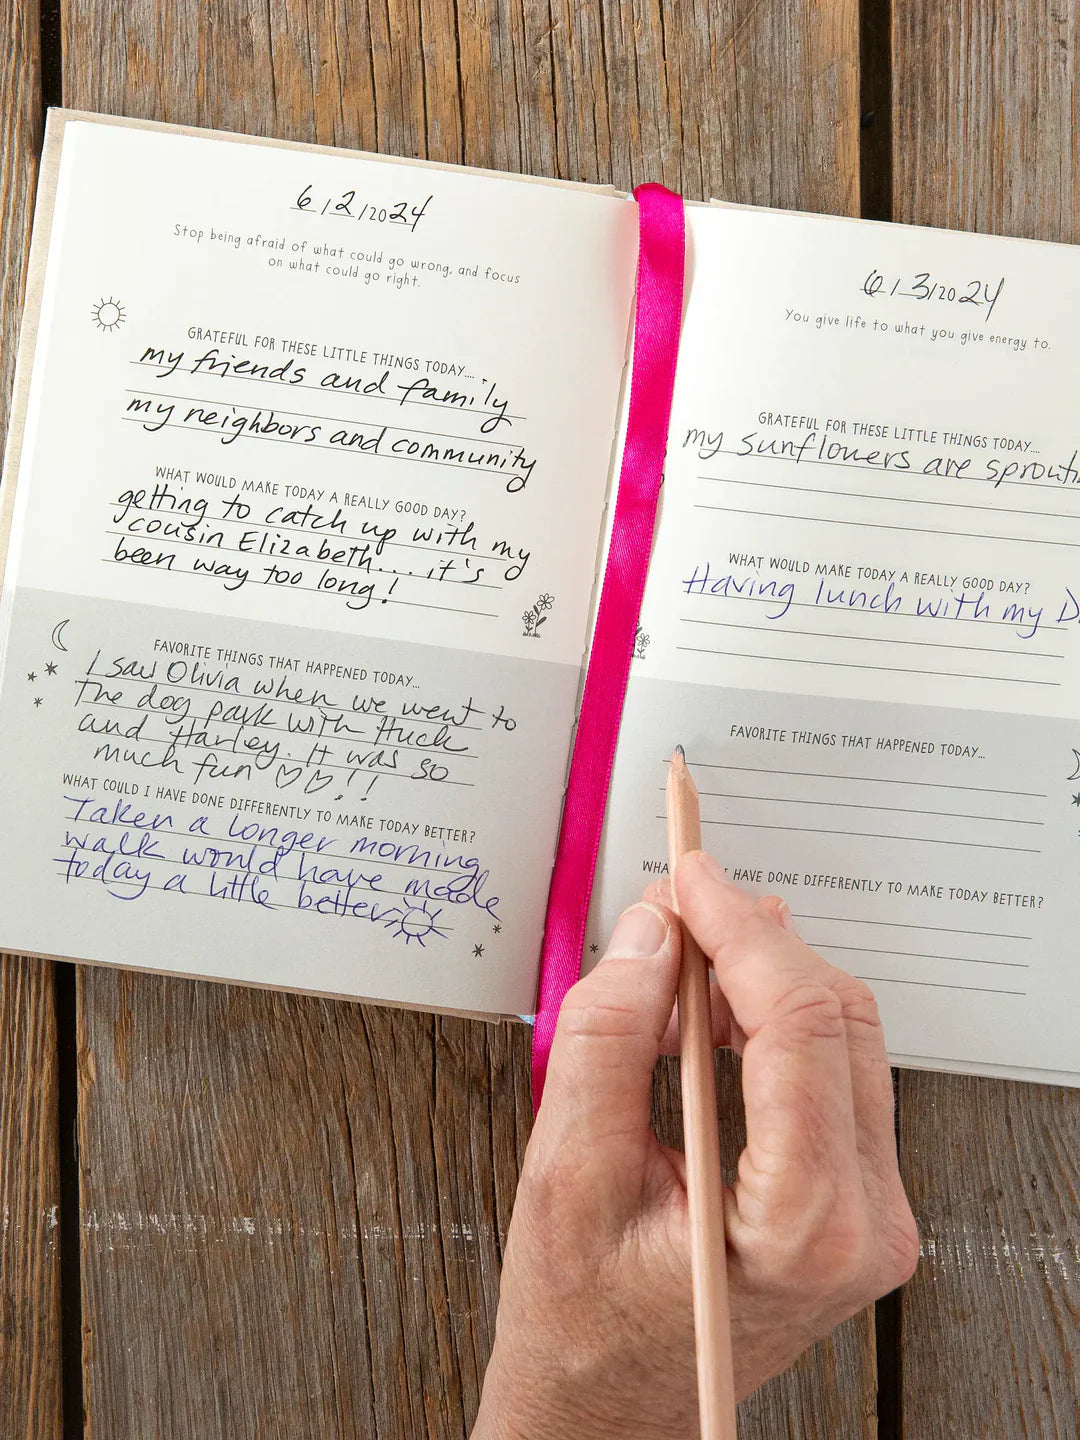 6/2/2024
Stop being afraid of what could go wrong, and focus
on what could go right.
GRATEFUL FOR THESE LITTLE THINGS TODAY....
my friends and family
my neighbors and community
WHAT WOULD MAKE TODAY A REALLY GOOD DAY?
getting to catch up with my
cousin Elizabeth... it's
been way too long!
FAVORITE THINGS THAT HAPPENED TODAY...
I saw Olivia when we went to
the dog park with Huck
and Harley. It was so
much fun ♡♡!!
WHAT COULD I HAVE DONE DIFFERENTLY TO MAKE TODAY BETTER?
Taken a longer morning
walk would have made
today a little better
6/3/2024
You give life to what you give energy to.
GRATEFUL FOR THESE LITTLE THINGS TODAY...
my sunflowers are
WHAT WOULD MAKE TODAY A REALLY GOOD DAY?
Having lunch with my
FAVORITE THINGS THAT HAPPENED TODAY...
I HAVE DONE DIFFERENTLY TO MAKE TODAY BETTER?